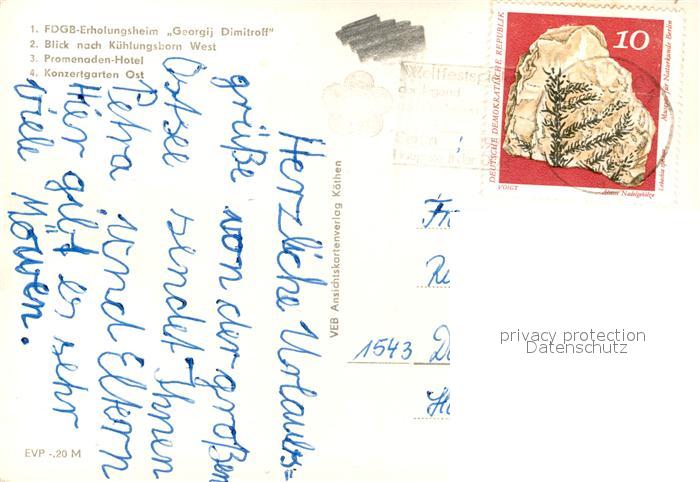 1. FDGB-Erholungsheim „Georgij Dimitroff"
2. Blick nach Kühlungsborn West
3. Promenaden-Hotel
4. Konzertgarten Ost
Herzliche Urlaubs=
grüße von der großen
Ostsee sendet Ihnen
Petra und Eltern
Hier gibt es sehr
viele Möwen.
EVP -.20 M
VEB Ansichtskartenverlag Köthen
Weltfestspiele
der Jugend
Berlin
DEUTSCHE DEMOKRATISCHE REPUBLIK
10
Museum für Naturkunde Berlin
VOIGT
Ältere Nadelgehölze
Fr
Re
1543 D
privacy protection
Datenschutz